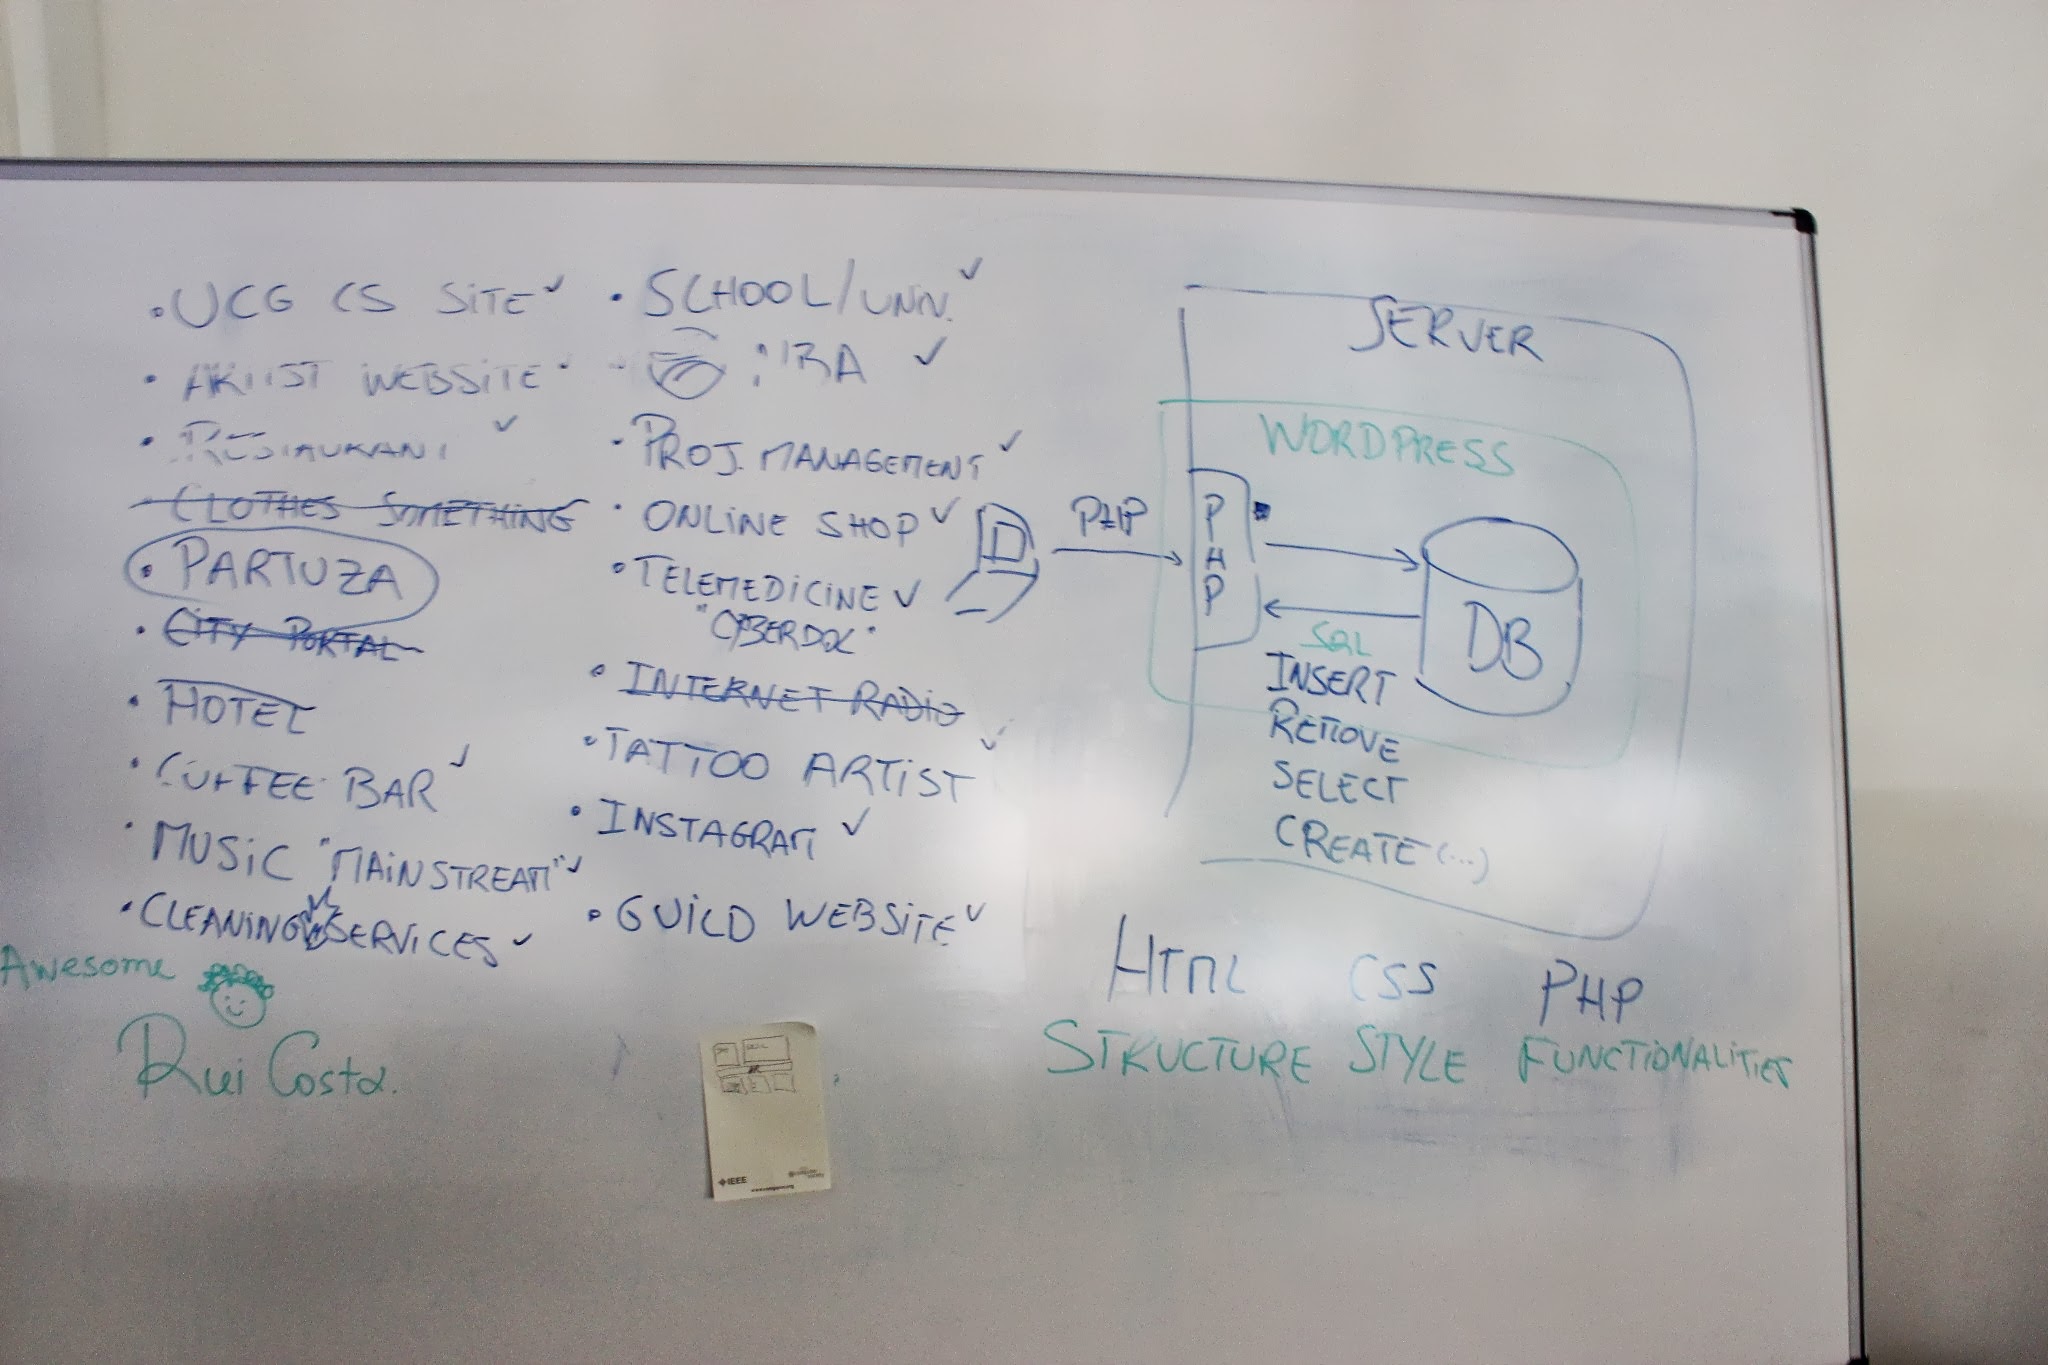 • UCG CS SITE ✓
• ARTIST WEBSITE
• RESTAURANT ✓
CLOTHES SOMETHING
• PARTUZA
• CITY PORTAL
• HOTEL
• COFFEE BAR ✓
• MUSIC "MAINSTREAM" ✓
• CLEANING SERVICES ✓
Awesome
Rui Costa.
• SCHOOL/UNIV. ✓
• PROJ. MANAGEMENT ✓
• ONLINE SHOP ✓
• TELEMEDICINE ✓
"CYBERDOC"
• INTERNET RADIO
• TATTOO ARTIST ✓
• INSTAGRAM ✓
• GUILD WEBSITE ✓
IEEE
SERVER
WORDPRESS
PHP
PHP
DB
SQL
INSERT
REMOVE
SELECT
CREATE (...)
HTML CSS PHP
STRUCTURE STYLE FUNCTIONALITIES